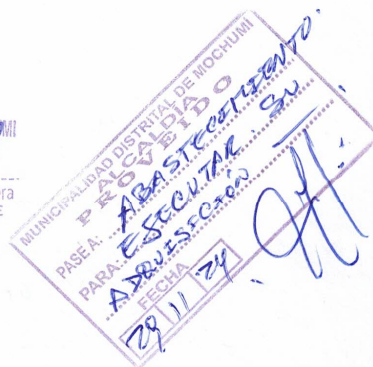 MUNICIPALIDAD DISTRITAL DE MOCHUMÍ
ALCALDÍA
PROVEIDO
PASE A: ABASTECIMIENTO.
PARA: EJECUTAR SU
ADQUISICIÓN
FECHA
29 11 24